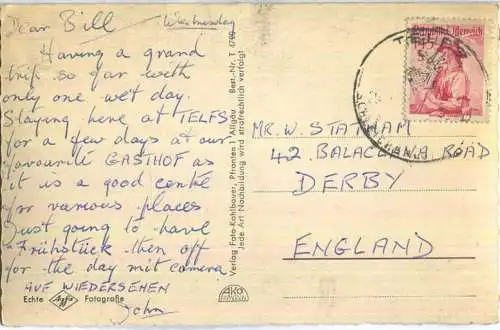 Dear Bill Wednesday
Having a grand
trip so far with
only one wet day.
Staying here at TELFS
for a few days at our
favourite GASTHOF as
it is a good centre
for various places
Just going to have
Frühstück then off
for the day mit camera
AUF WIEDERSEHEN
John
Echte Agfa Fotografie
Verlag Foto-Kohlbauer, Pfronten 1 Allgäu Best.-Nr. T
Jede Art Nachbildung wird strafrechtlich verfolgt
TELFS
Republik Österreich
MR. W. STATHAM
42. BALACLAVA ROAD
DERBY
ENGLAND